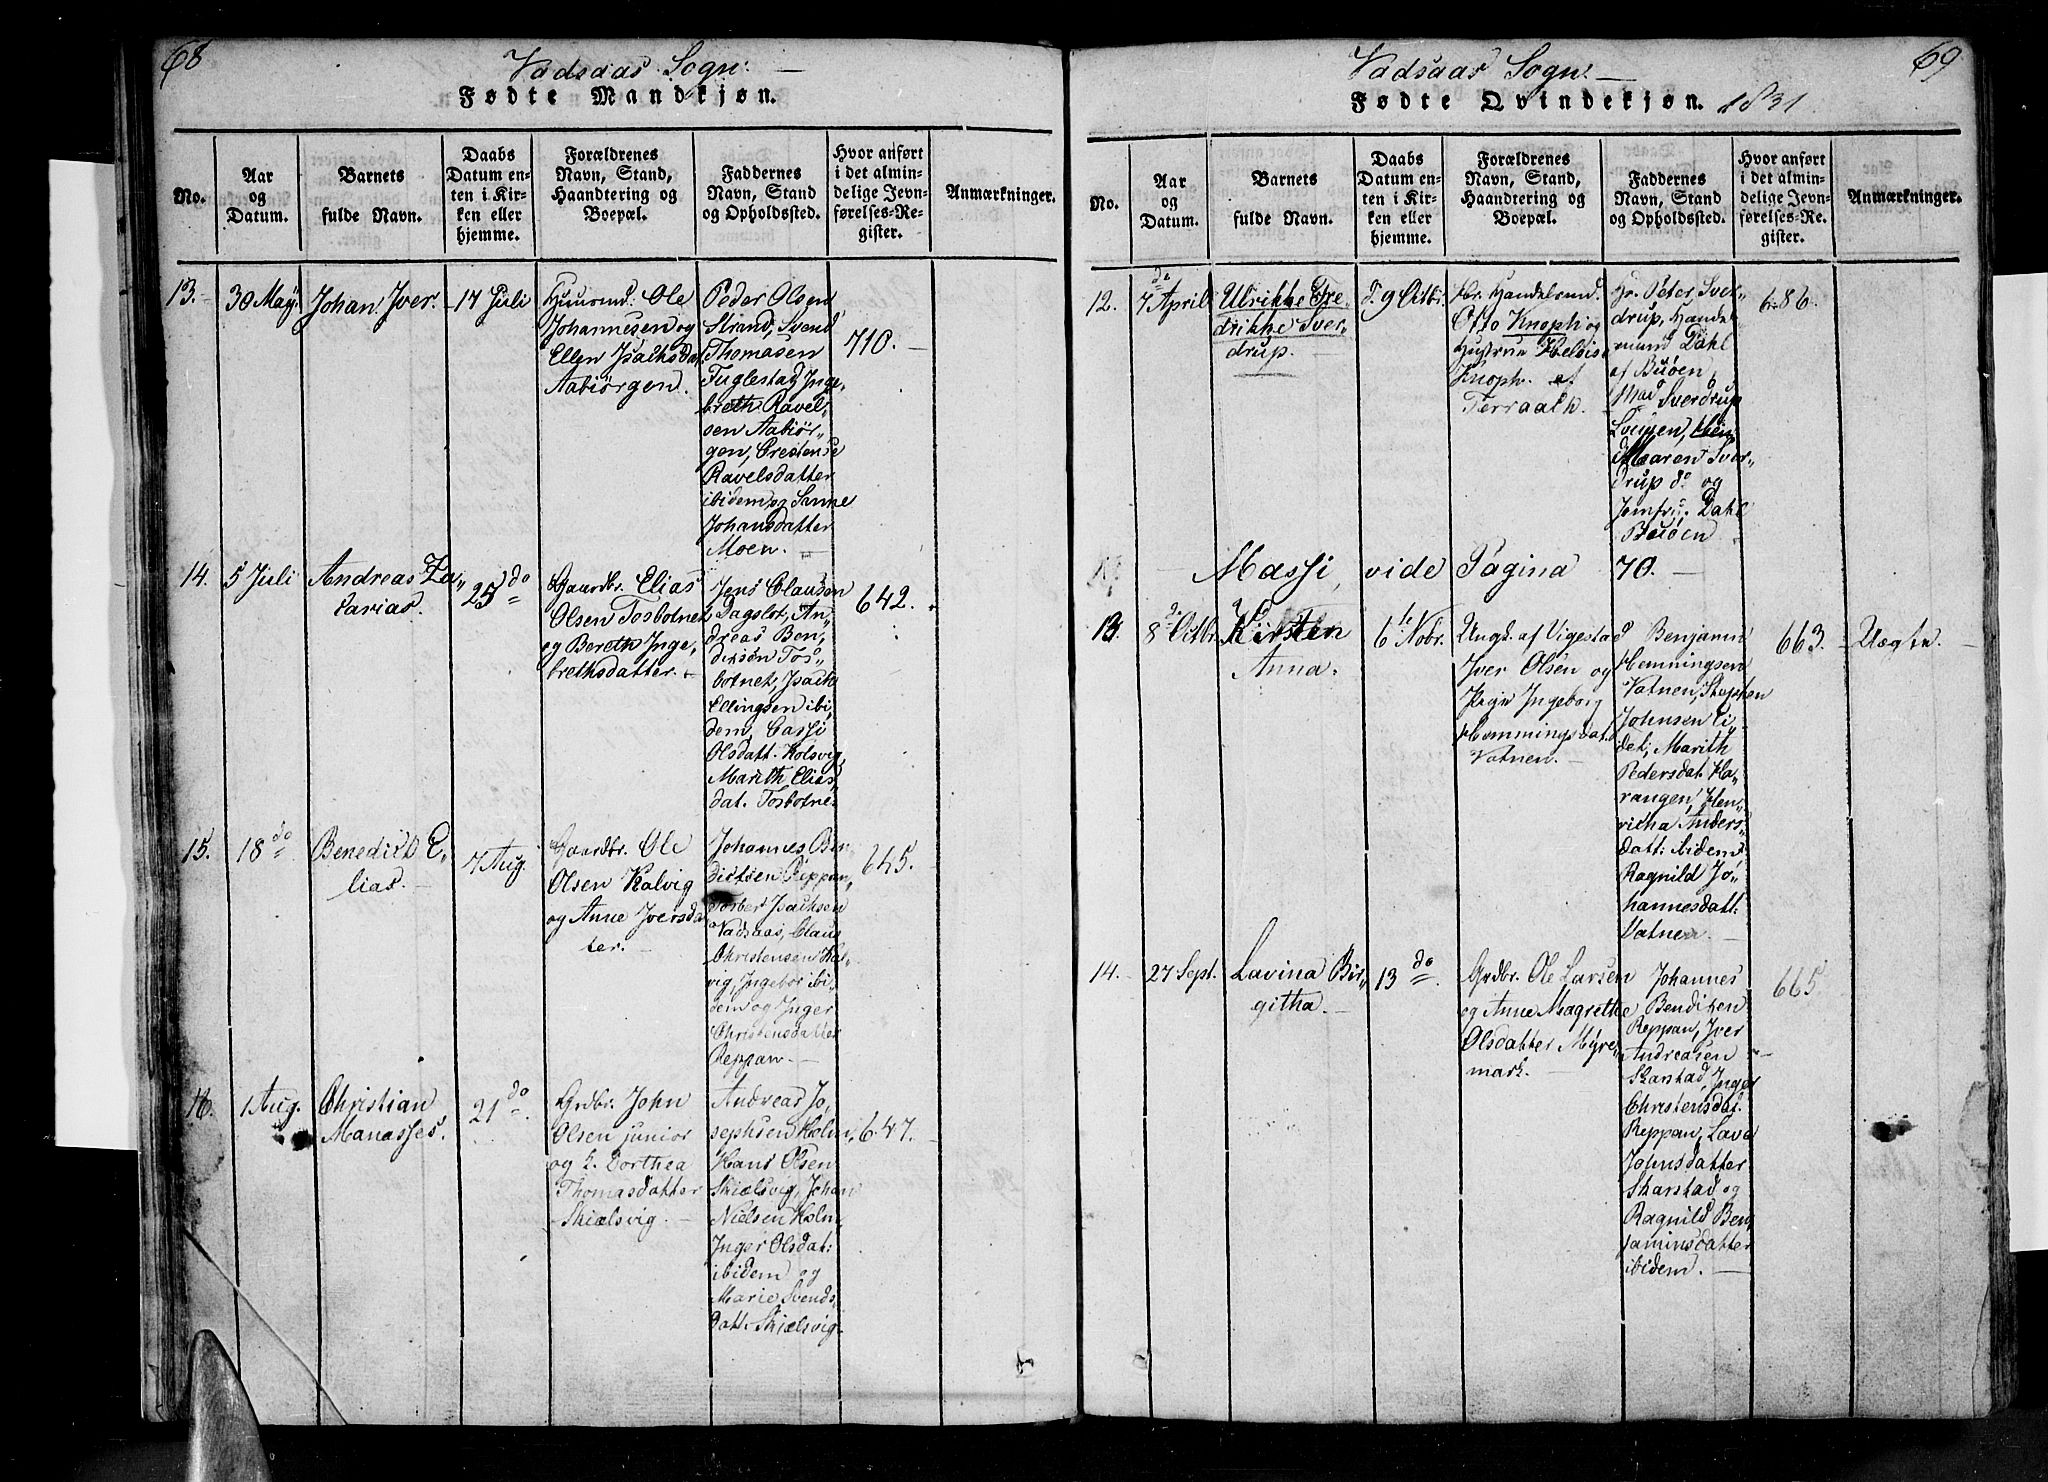 68
Vadsaas Sogn. —
Fødte Mandkjøn.
No.
Aar
og
Datum.
Barnets
fulde Navn.
Daabs
Datum en-
ten i Kir-
ken eller
hjemme.
Forældrenes
Navn, Stand,
Haandtering og
Boepæl.
Faddernes
Navn, Stand
og Opholdssted.
Hvor anført
i det almin-
delige Jevn-
førelses-Re-
gister.
Anmærkninger.
13.
30 May.
Johan Iver.
17 Juli
Huusmd. Ole
Johannesen og
Ellen Isachsdat
Aabiørgen.
Peder Olsen
Strand, Svend
Thomasen
Fuglestad, Inge-
breth Ravel-
sen Aabiør-
gen, Crestense
Ravelsdatter
ibidem, og Sanne
Johansdatter
Moen. —
710. —
14.
5 Juli
Andreas Za-
carias.
25 do
Gaardbr. Elias
Olsen Tosbotnet
og Bereth Inge-
brethsdatter. —
Jens Clausen
Dagslot, An-
dreas Ben-
dixsen Tos-
botnet, Isach
Ellingsen ibi-
dem, Cassi
Olsdatt. Kolsvig,
Marith Elias-
dat. Tosbotne.
642.
15.
18 do
Benedict E-
lias. —
7 Aug.
Gaardbr. Ole
Olsen Kalvig
og Anne Iversda
ter. —
Johannes Ben
dictsen Reppan,
Torber Isachsen
Vadsaas, Claus
Christensen Kal-
vig, Ingebor ibi-
dem og Inger
Christensdatter
Reppan. —
645. —
16.
1 Aug.
Christian
Manasses.
21 do
Grdbr. John
Olsen junior
og k. Dorthea
Thomasdatter
Skielsvig. —
Andreas Jo-
sephsen Holm,
Hans Olsen
Skielsvig, Johan
Nielsen Holm
Inger Olsdat:
ibidem og
Marie Svends-
datt. Skielsvig.
647. —
69
Vadsaas Sogn. —
Fødte Qvindekjøn. 1831
No.
Aar
og
Datum.
Barnets
fulde Navn.
Daabs
Datum en-
ten i Kir-
ken eller
hjemme.
Forældrenes
Navn, Stand,
Haandtering og
Boepæl.
Faddernes
Navn, Stand
og Opholdssted.
Hvor anført
i det almin-
delige Jevn-
førelses-Re-
gister.
Anmærkninger.
12.
do
7 April
Ulrikke Fre-
drikke Sver-
drup.
d. 9 Octbr.
Hr. Handelsmd.
Otto Knoph og
Hustrue Heloise
Knoph. af
Terraak.
Hr. Peter Sver-
drup, Handel
mand Dahl
af Buøen,
Mad Sverdrup
Maren Sver-
drup do og
Jomfru. Dahl
Buøen
686.
Massi vide Pagina 70. —
13.
8 do Octbr.
Kirsten
Anna.
6te Nobr.
Ungk. af Vigestad
Iver Olsen og
Pige Ingeborg
Hemmingsdat.
Vatnen. —
Benjamin
Hemmingsen
Vatnen, Stephen
Johnsen Ei-
det, Marith
Pedersdat. Ha-
rangen, Hen-
ritha Anders-
datt: ibidem
Ragnild Jo-
hannesdatt:
Vatnen. —
663. —
Uægte. —
14.
27 Sept.
Lavina Bir-
githa. —
13 do
Grdbr. Ole Larsen
og Anne Magrethe
Olsdatter Myre-
mark. —
Johannes
Bendixen
Reppan, Iver
Andreasen
Skarstad, Inger
Christensdat.
Reppan, Lava
Johnsdatter
Skarstad og
Ragnild Ben
jaminsdatter
ibidem. —
665.